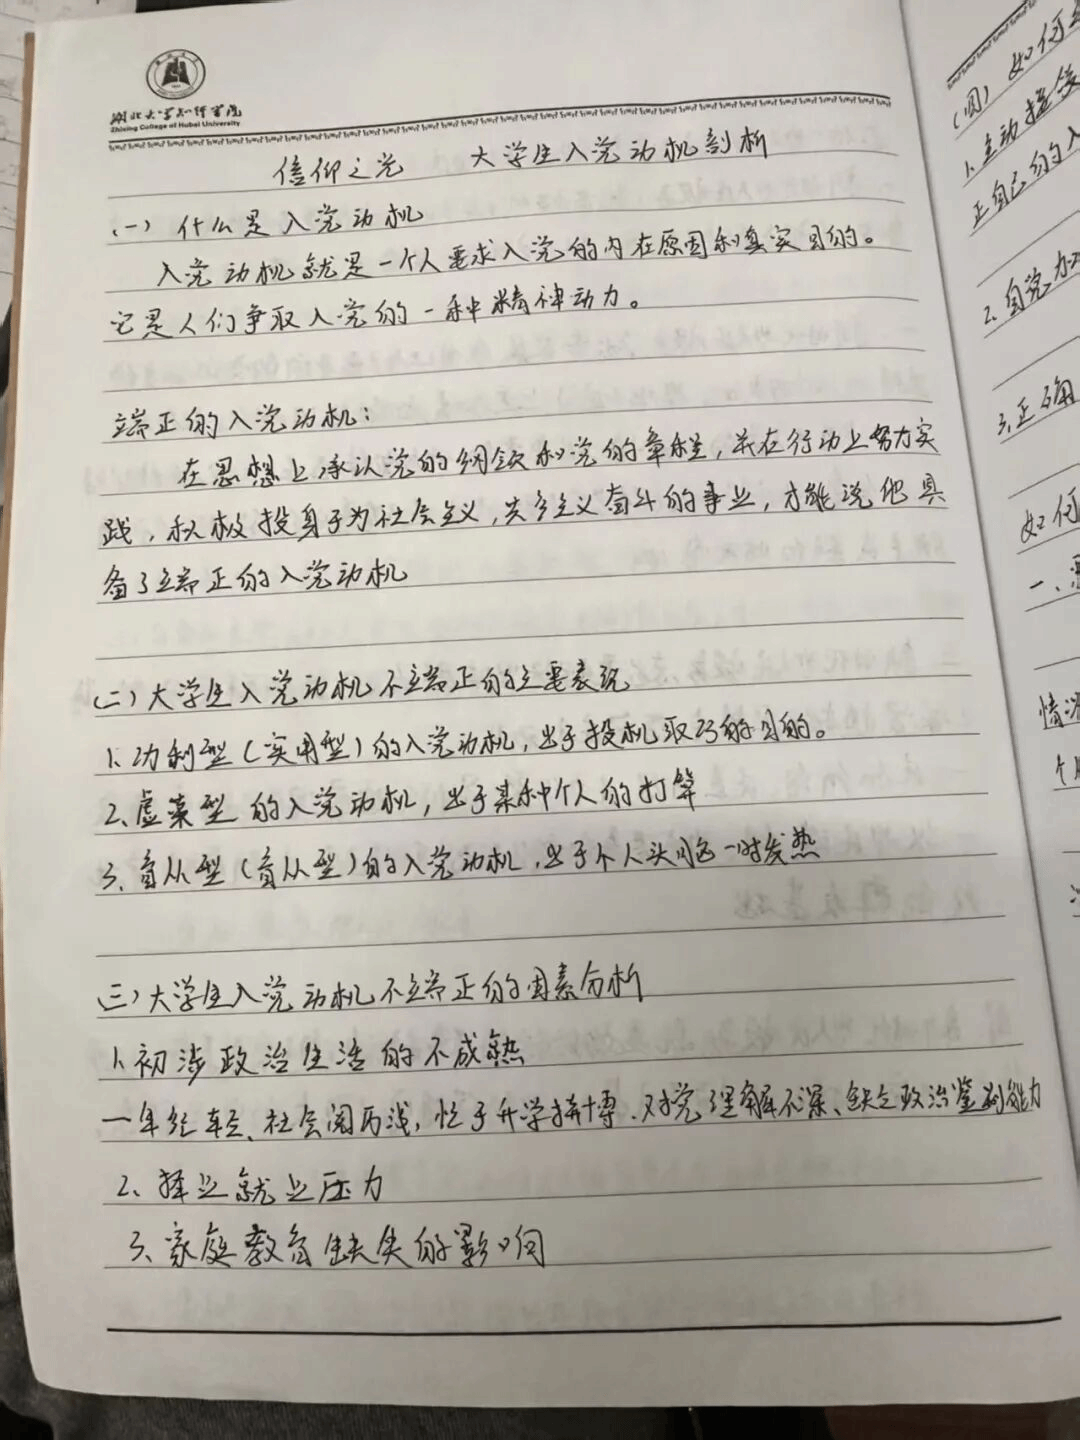 湖北大学知行学院
Zhixing College of Hubei University
信仰之光 大学生入党动机剖析
(一) 什么是入党动机
入党动机就是一个人要求入党的内在原因和真实目的。
它是人们争取入党的一种精神动力。
端正的入党动机:
在思想上承认党的纲领和党的章程,并在行动上努力实
践,积极投身于为社会主义,共产主义奋斗的事业,才能说他具
备了端正的入党动机
(二)大学生入党动机不端正的主要表现
1、功利型(实用型)的入党动机,出于投机取巧的目的。
2、虚荣型的入党动机,出于某种个人的打算
3、盲从型(盲从型)的入党动机,出于个人头脑一时发热
(三)大学生入党动机不端正的因素分析
1、初涉政治生活的不成熟
一年纪轻、社会阅历浅,忙于升学拼搏、对党理解不深、缺乏政治鉴别能力
2、择业就业压力
3、家庭教育缺失的影响
(四) 如何
1、主动接
正自己的入
2、自觉
3、正确
如何
一、
情
个